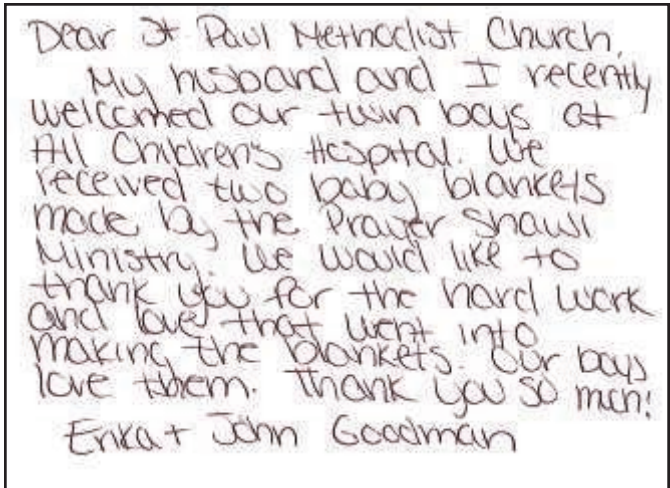 Dear St Paul Methodist Church,
My husband and I recently
welcomed our twin boys at
All Children's Hospital. We
received two baby blankets
made by the Prayer Shawl
Ministry. We would like to
thank you for the hard work
and love that went into
making the blankets. Our boys
love them. Thank you so much!
Erika + John Goodman